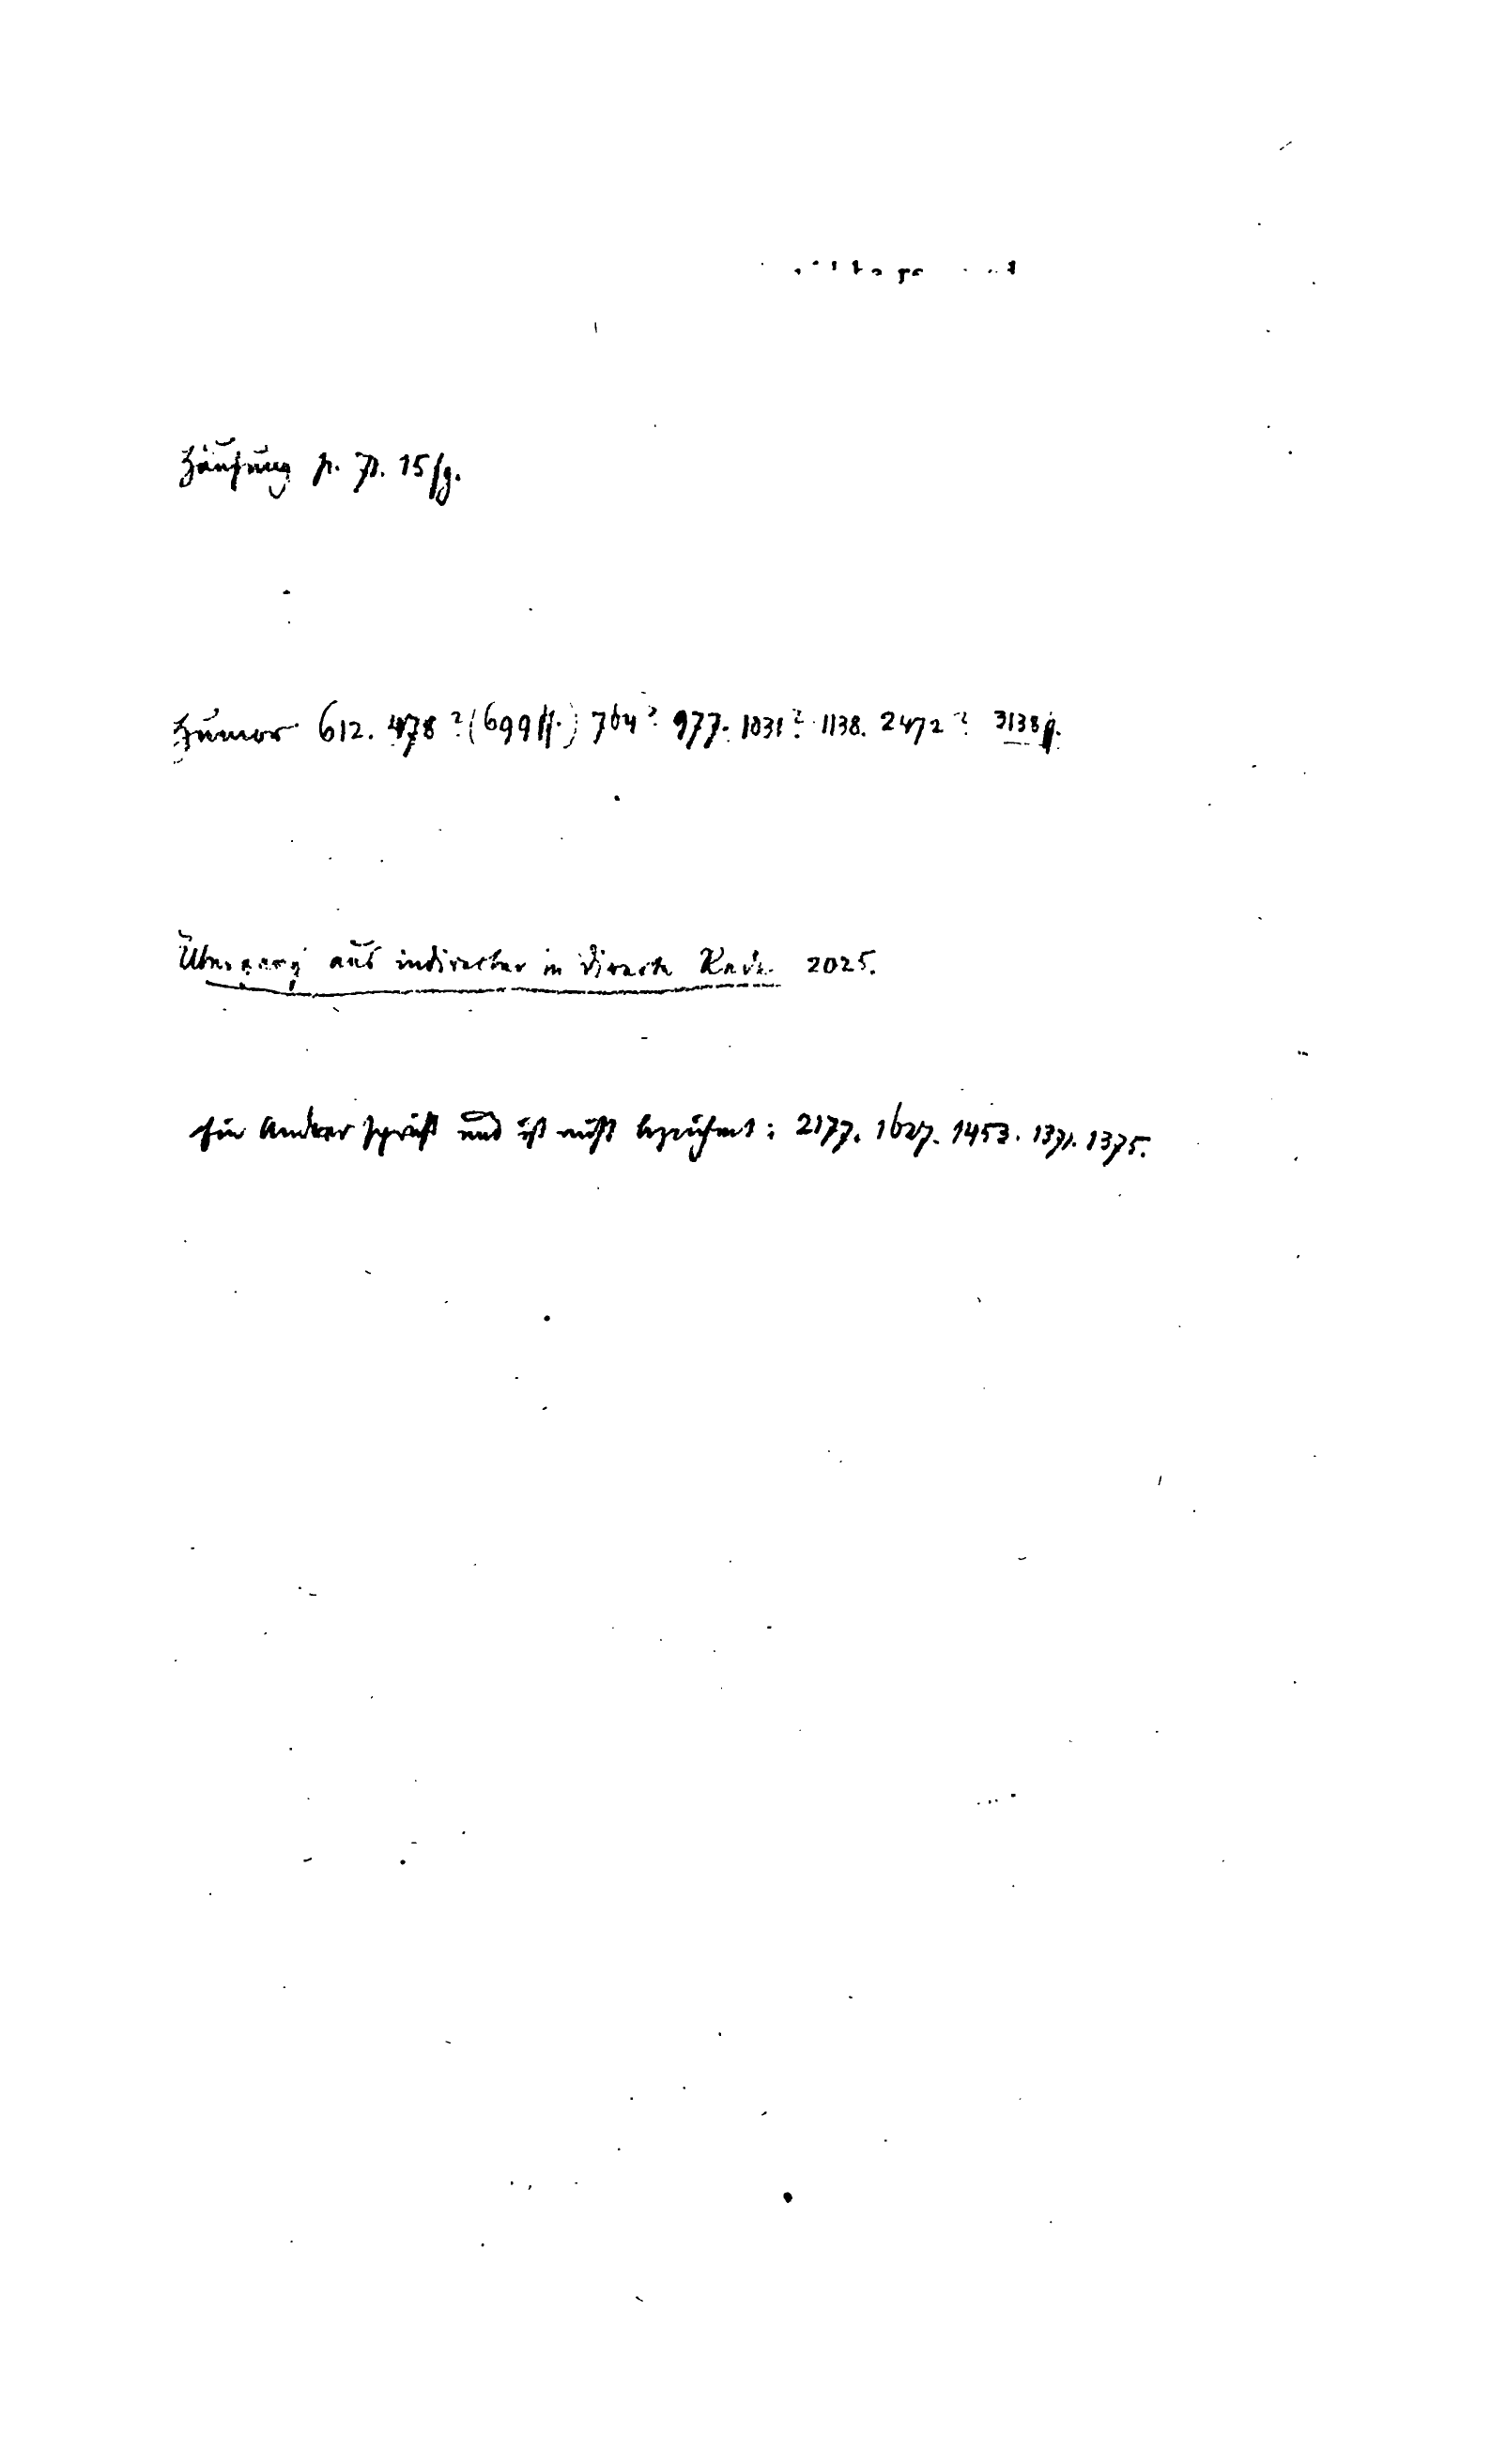 Häufung p. 71. 15 fg.
Humor 612. 478? (699 ff.) 764? 977. 1031? 1138. 2472? 3138 f.
Übergang aus indirecter in directe Rede 2025.
Ein Andrer spricht und ist nicht bezeichnet: 2177. 1627. 1453. 1371. 1375.